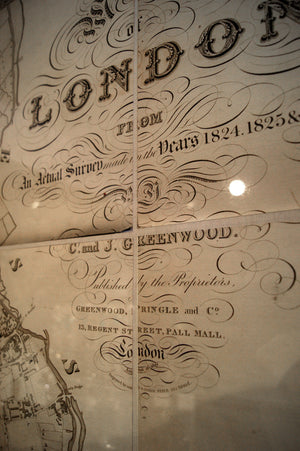 OF
LONDON
FROM
An Actual Survey made in the Years 1824.1825 &
BY
C. and J. GREENWOOD.
Published by the Proprietors,
GREENWOOD, PRINGLE and Co
13, REGENT STREET, PALL MALL.
London